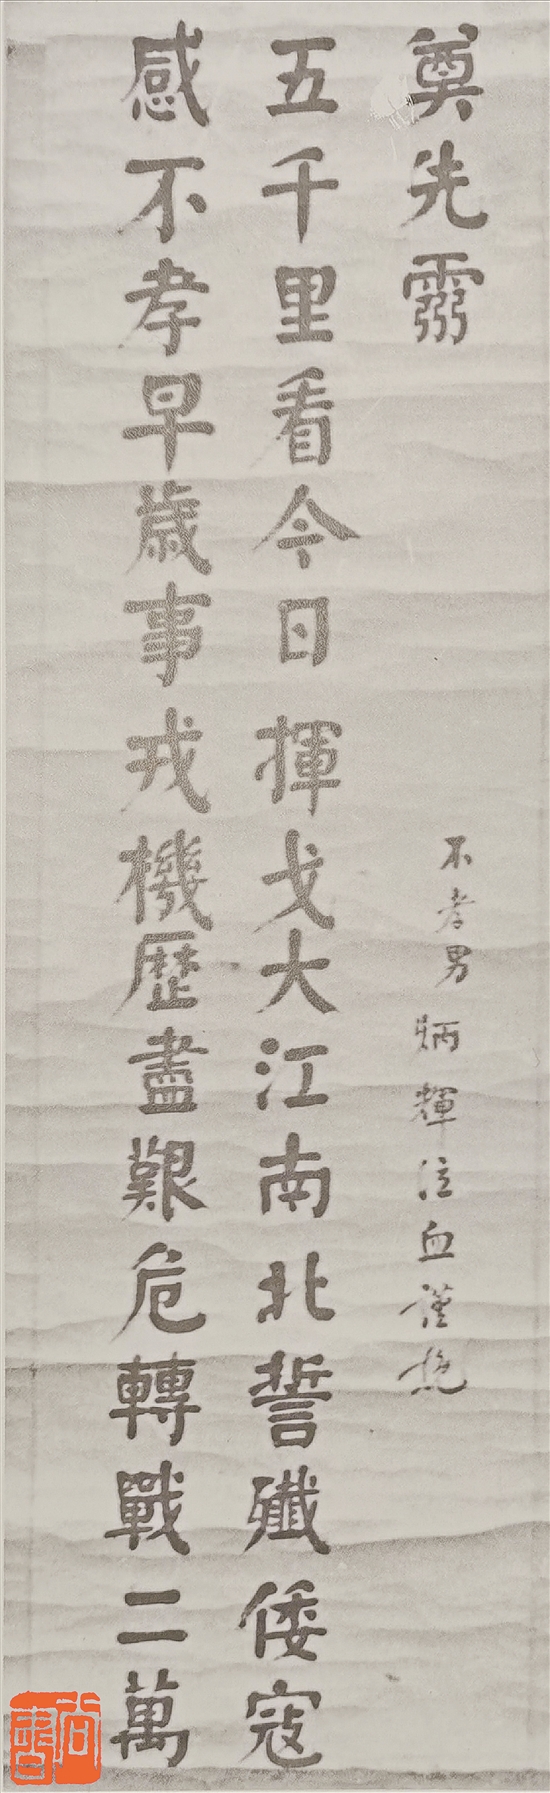 感不孝早歲事戎機歷盡艱危轉戰二萬
五千里看今日揮戈大江南北誓殲倭寇
奠先靈
不孝男炳輝泣血謹挽